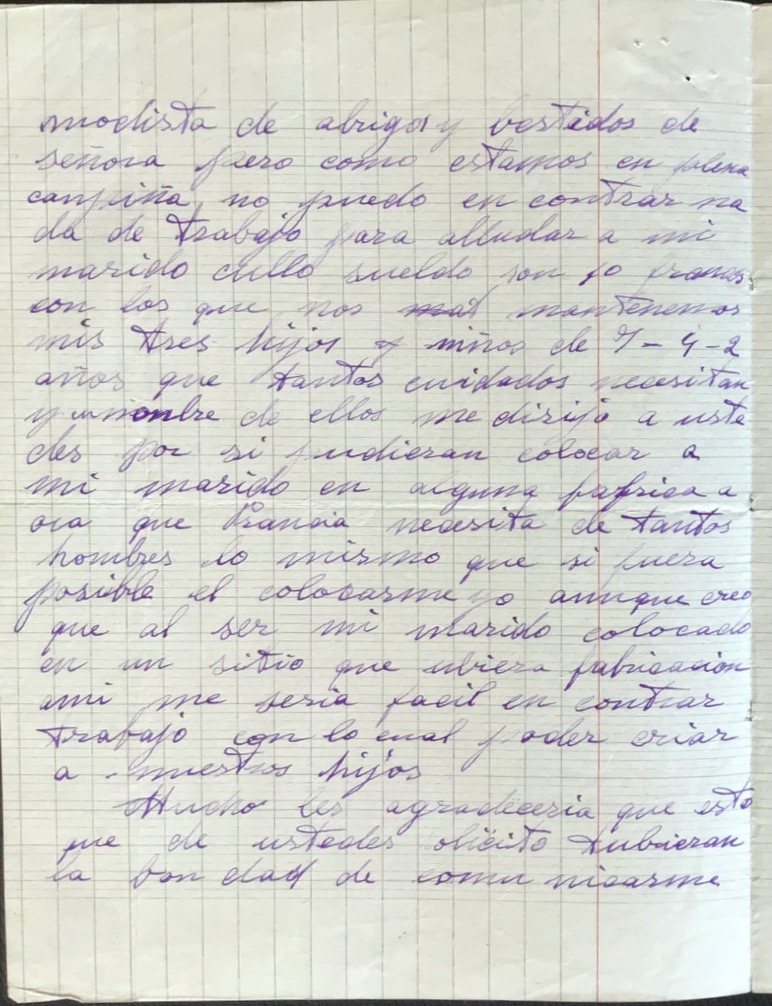 modista de abrigos y bestidos de
señora pero como estamos en plena
campiña no puedo en contrar na
da de trabajo para alludar a mi
marido cullo sueldo son 10 francos
con los que nos mantenemos
mis tres hijos y niños de 7-4-2
años que tantos cuidados necesitan
y en nonbre de ellos me dirijo a uste
des por si pudieran colocar a
mi marido en alguna fabrica a
ora que Francia necesita de tantos
hombres lo mismo que si fuera
posible el colocarme yo aunque creo
que al ser mi marido colocado
en un sitio que ubiera fabricacion
ami me seria facil en contrar
trabajo con lo cual poder criar
a nuestros hijos
Mucho les agradeceria que esto
que de ustedes solicito tubieran
la bon dad de comu nicarme